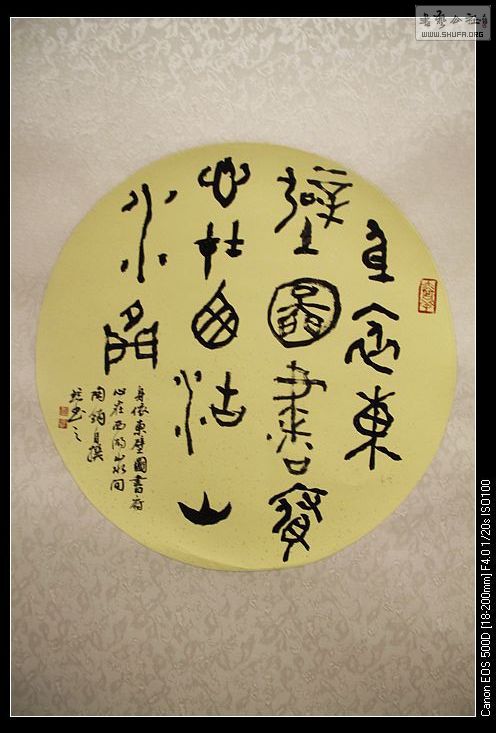 書藝公社
WWW.SHUFA.ORG
身依東
壁圖書府
心在西湖山
水間
身依東壁圖書府
心在西湖山水間
自撰
書之
Canon EOS 500D [18-200mm] F4.0 1/20s ISO100